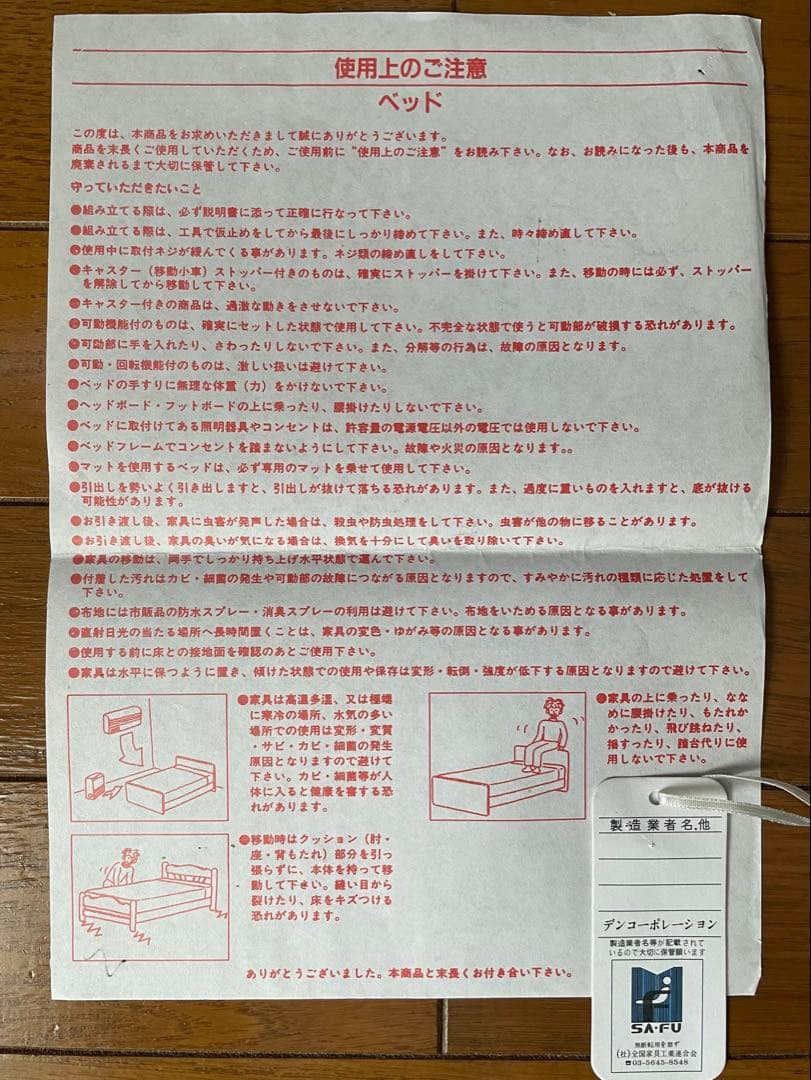 使用上のご注意
ベッド
この度は、本商品をお求めいただきまして誠にありがとうございます。
商品を末長くご使用していただくため、ご使用前に"使用上のご注意"をお読み下さい。なお、お読みになった後も、本商品を
廃棄されるまで大切に保管して下さい。
守っていただきたいこと
●組み立てる際は、必ず説明書に添って正確に行なって下さい。
●組み立てる際は、工具で仮止めをしてから最後にしっかり締めて下さい。また、時々締め直して下さい。
●使用中に取付ネジが緩んでくる事があります。ネジ類の締め直しをして下さい。
●キャスター（移動小車）ストッパー付きのものは、確実にストッパーを掛けて下さい。また、移動の時には必ず、ストッパー
を解除してから移動して下さい。
●キャスター付きの商品は、過激な動きをさせないで下さい。
●可動機能付のものは、確実にセットした状態で使用して下さい。不完全な状態で使うと可動部が破損する恐れがあります。
●可動部に手を入れたり、さわったりしないで下さい。また、分解等の行為は、故障の原因となります。
●可動・回転機能付のものは、激しい扱いは避けて下さい。
●ベッドの手すりに無理な体重（力）をかけないで下さい。
●ヘッドボード・フットボードの上に乗ったり、腰掛けたりしないで下さい。
●ベッドに取付けてある照明器具やコンセントは、許容量の電源電圧以外の電圧では使用しないで下さい。
●ベッドフレームでコンセントを踏まないようにして下さい。故障や火災の原因となります。。
●マットを使用するベッドは、必ず専用のマットを乗せて使用して下さい。
●引出しを勢いよく引き出しますと、引出しが抜けて落ちる恐れがあります。また、過度に重いものを入れますと、底が抜ける
可能性があります。
●お引き渡し後、家具に虫害が発声した場合は、殺虫や防虫処理をして下さい。虫害が他の物に移ることがあります。
●お引き渡し後、家具の臭いが気になる場合は、換気を十分にして臭いを取り除いて下さい。
●家具の移動は、両手でしっかり持ち上げ水平状態で運んで下さい。
●付着した汚れはカビ・細菌の発生や可動部の故障につながる原因となりますので、すみやかに汚れの種類に応じた処置をして
下さい。
●布地には市販品の防水スプレー・消臭スプレーの利用は避けて下さい。布地をいためる原因となる事があります。
●直射日光の当たる場所へ長時間置くことは、家具の変色・ゆがみ等の原因となる事があります。
●使用する前に床との接地面を確認のあとご使用下さい。
●家具は水平に保つように置き、傾けた状態での使用や保存は変形・転倒・強度が低下する原因となりますので避けて下さい。
●家具は高温多湿、又は極端
に寒冷の場所、水気の多い
場所での使用は変形・変質
・サビ・カビ・細菌の発生
原因となりますので避けて
下さい。カビ・細菌等が人
体に入ると健康を害する恐
れがあります。
●家具の上に乗ったり、なな
めに腰掛けたり、もたれか
かったり、飛び跳ねたり、
揺すったり、踏台代りに使
用しないで下さい。
●移動時はクッション（肘・
座・背もたれ）部分を引っ
張らずに、本体を持って移
動して下さい。縫い目から
裂けたり、床をキズつける
恐れがあります。
ありがとうございました。本商品と末長くお付き合い下さい。
製造業者名.他
デンコーポレーション
製造業者名等が記載されて
いるので大切に保管願います
SA・FU
無断転用を禁ず
(社)全国家具工業連合会
☎03-5645-8548